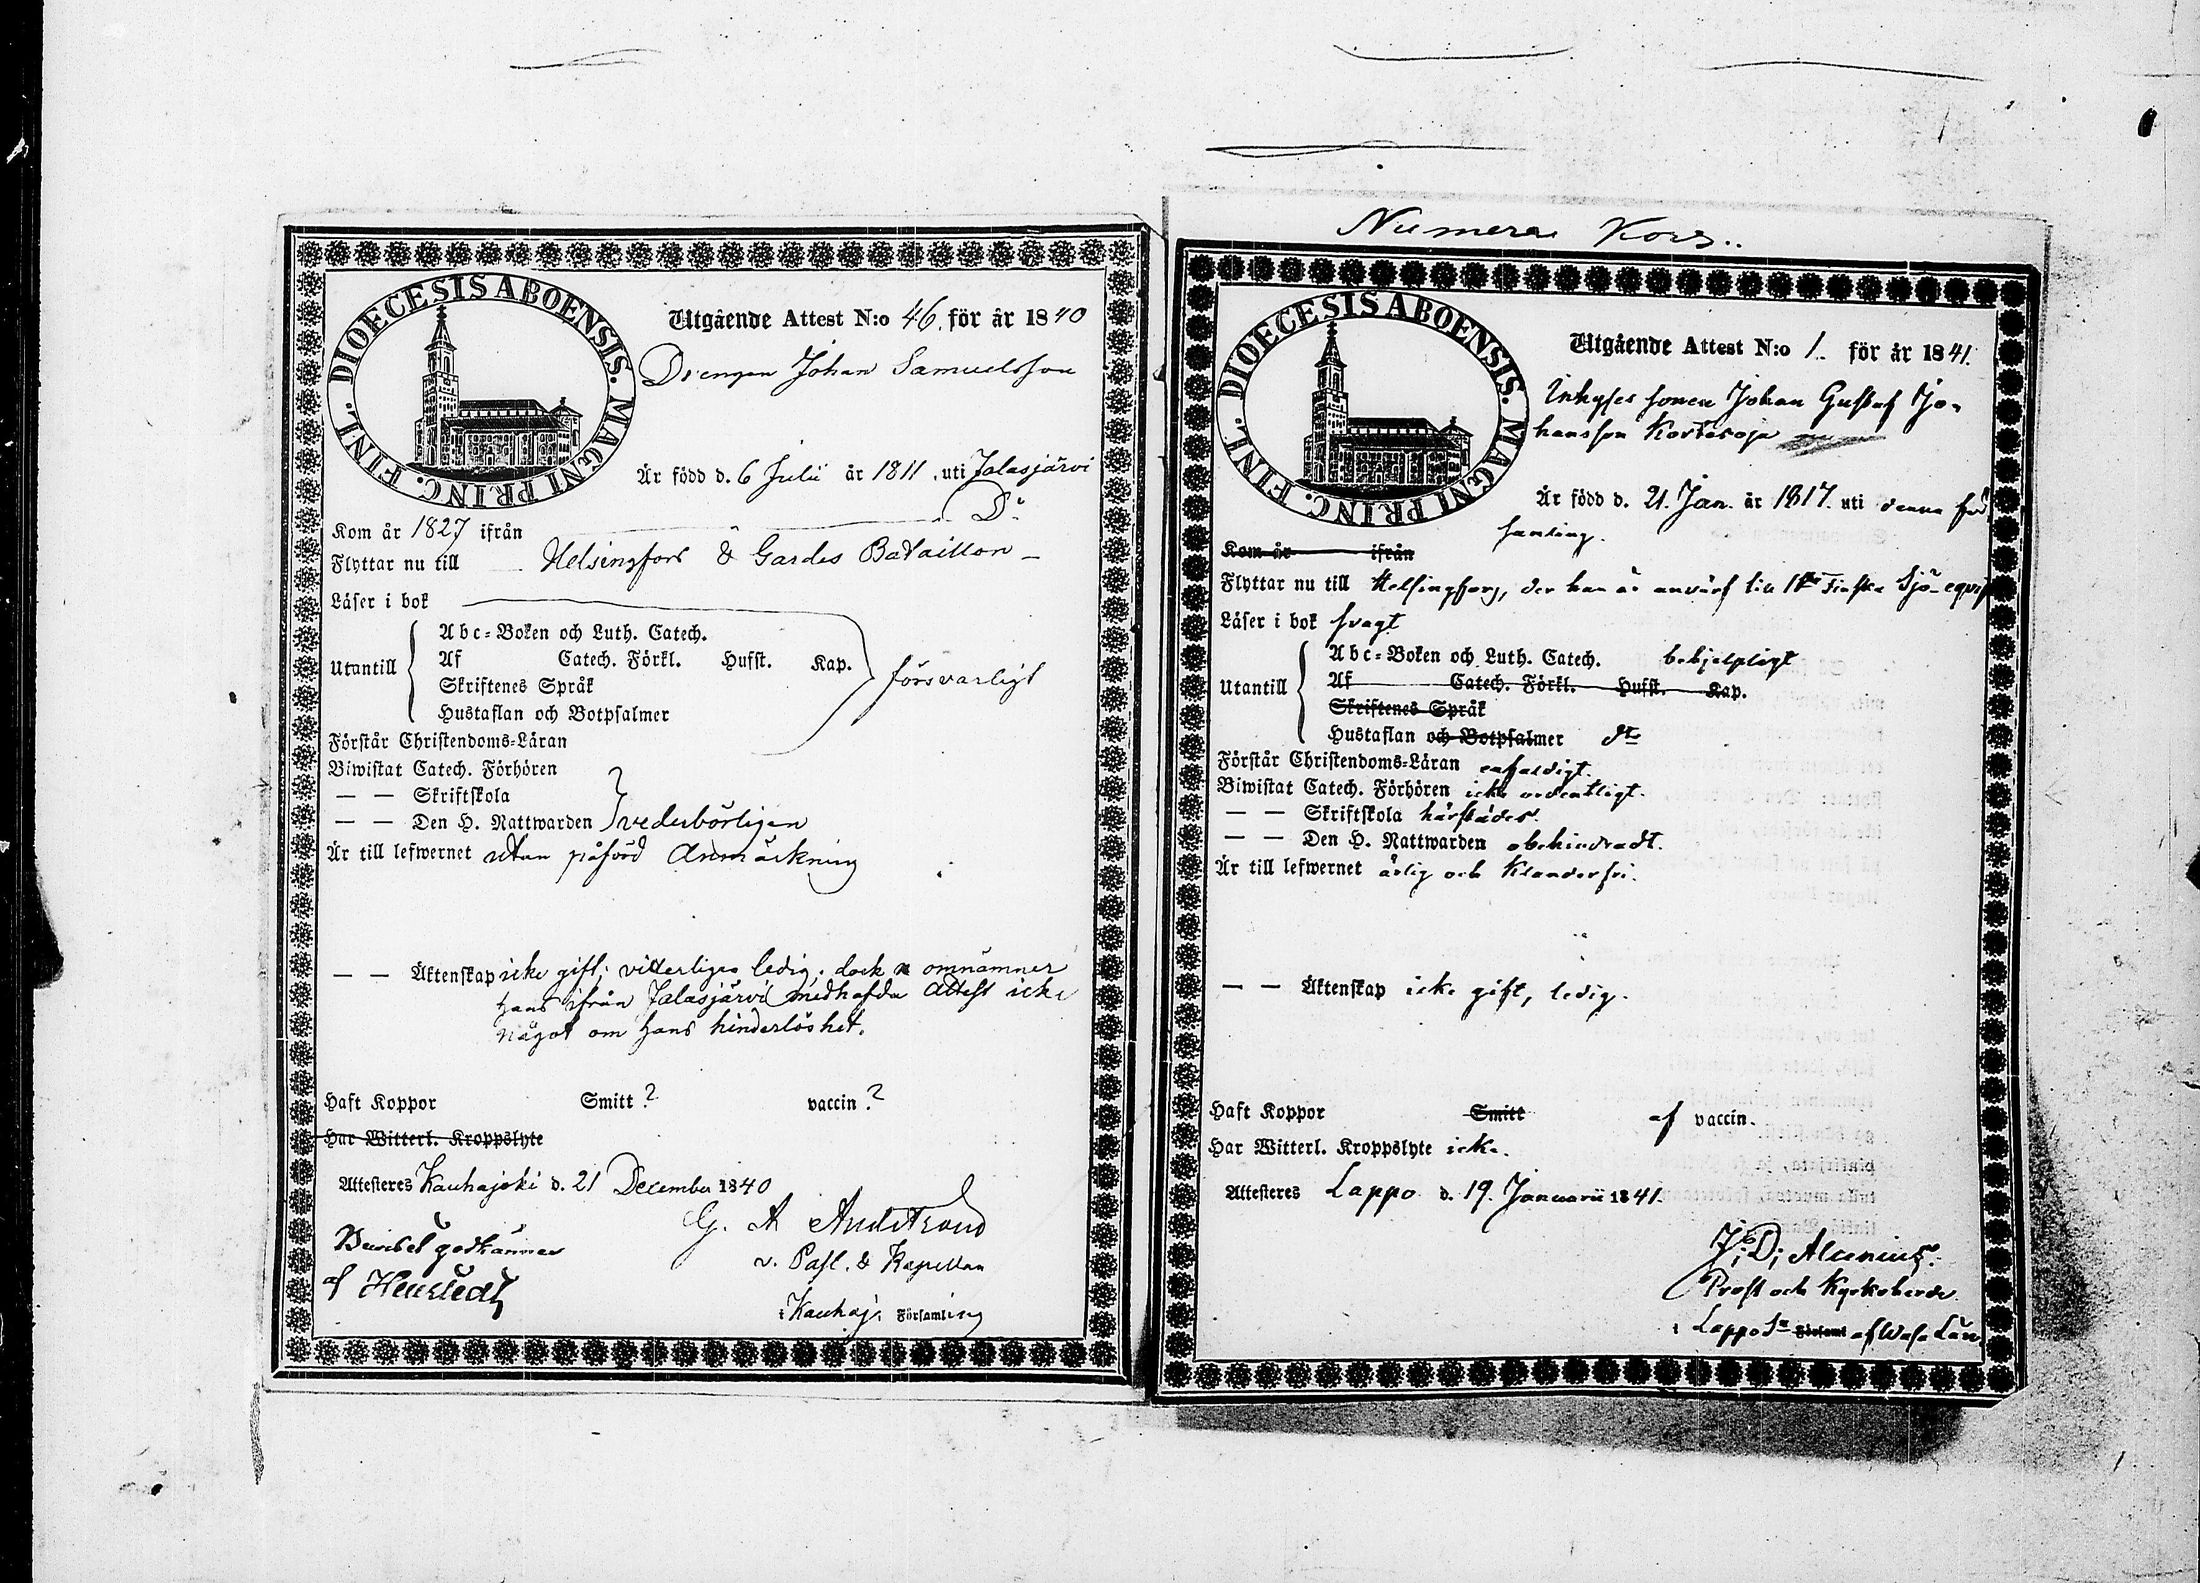 DIOECESIS ABOENSIS. MAGNI PRINC. FINL.
Utgående Attest N:o 46. för år 1840
Drengen Johan Samuelsson
Är född d. 6 Julii år 1811, uti Jalasjärvi
Kom år 1827 ifrån D:o
Flyttar nu till Helsingfors & Gardes Bataillon
Läser i bok
Utantill
Abc-Boken och Luth. Catech.
Af Catech. Förkl. Hufst. Kap.
försvarligt
Skriftenes Språk
Hustaflan och Botpsalmer
Förstår Christendoms-Läran
Biwistat Catech. Förhören
— — Skriftskola
— — Den H. Nattwarden vederbörligen
Är till lefwernet utan påförd Anmärkning
— — Äktenskap icke gift; vitterligen ledig; dock omnämner
hans ifrån Jalasjärvi medhafda Attest icke
något om hans hinderlöshet.
Haft Koppor Smitt? vaccin?
Har Witterl. Kroppslyte
Attesteres Kauhajoki d. 21 December 1840
G. A
v. Past. & Kapellan
i Kauhaj. Församling
godkännes
Numera Kors..
DIOECESIS ABOENSIS. MAGNI PRINC. FINL.
Utgående Attest N:o 1. för år 1841.
Inhyses sonen Johan Gustaf Jo-
hansson Kortesoja
Är född d. 21. Jan. år 1817. uti denna för
samling.
Kom år ifrån
Flyttar nu till Helsingfors, der han är anvärf till 1sta Finska Sjö-equip
Läser i bok svagt
Utantill
Abc-Boken och Luth. Catech. behjelpligt
Af Catech. Förkl. Hufst. Kap.
Skriftenes Språk
Hustaflan och Botpsalmer dto
Förstår Christendoms-Läran enfaldigt.
Biwistat Catech. Förhören icke ordentligt.
— — Skriftskola härstädes.
— — Den H. Nattwarden obehindradt.
Är till lefwernet ärlig och klanderfri.
— — Äktenskap icke gift, ledig.
Haft Koppor Smitt af vaccin.
Har Witterl. Kroppslyte icke.
Attesteres Lappo d. 19. Januarii 1841.
J: D; Alcenius.
Prost och Kyrkoherde
i Lappo Sn Församl af Wasa Län